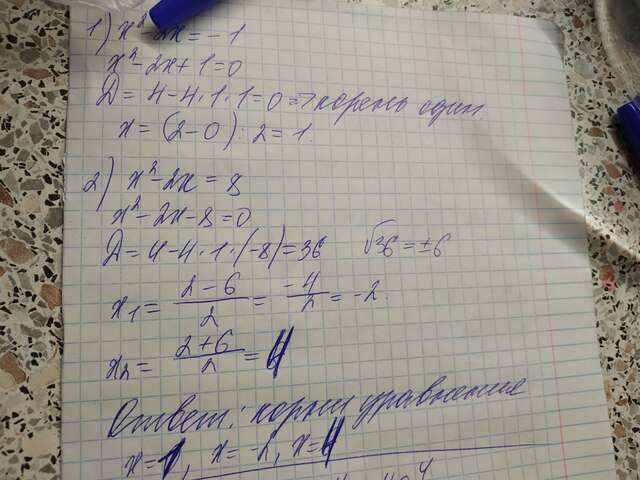 1) x²-2x=-1
x²-2x+1=0
D=4-4·1·1=0=>корень один
x=(2-0):2=1.
2) x²-2x=8
x²-2x-8=0
D=4-4·1·(-8)=36 √36=±6
x₁= 2-6/2 = -4/2 = -2.
x₂= 2+6/2 = 4
Ответ: корни уравнения
x=1, x=-2, x=4